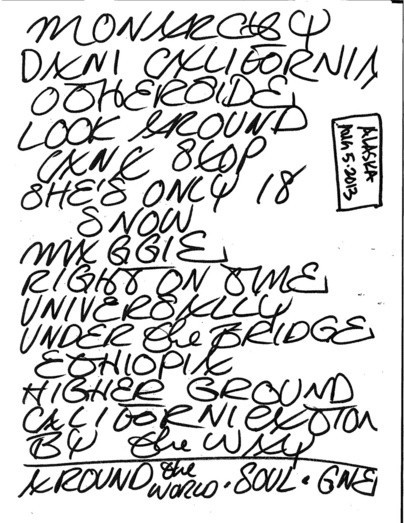 MONARCHY
DANI CALIFORNIA
OTHERSIDE
LOOK AROUND
CANT STOP
SHE'S ONLY 18
SNOW
MAGGIE
RIGHT ON TIME
UNIVERSALLY
UNDER the BRIDGE
ETHIOPIA
HIGHER GROUND
CALIFORNICATION
BY the WAY
AROUND the WORLD · SOUL · GIVE
ALASKA
AUG 5·2013